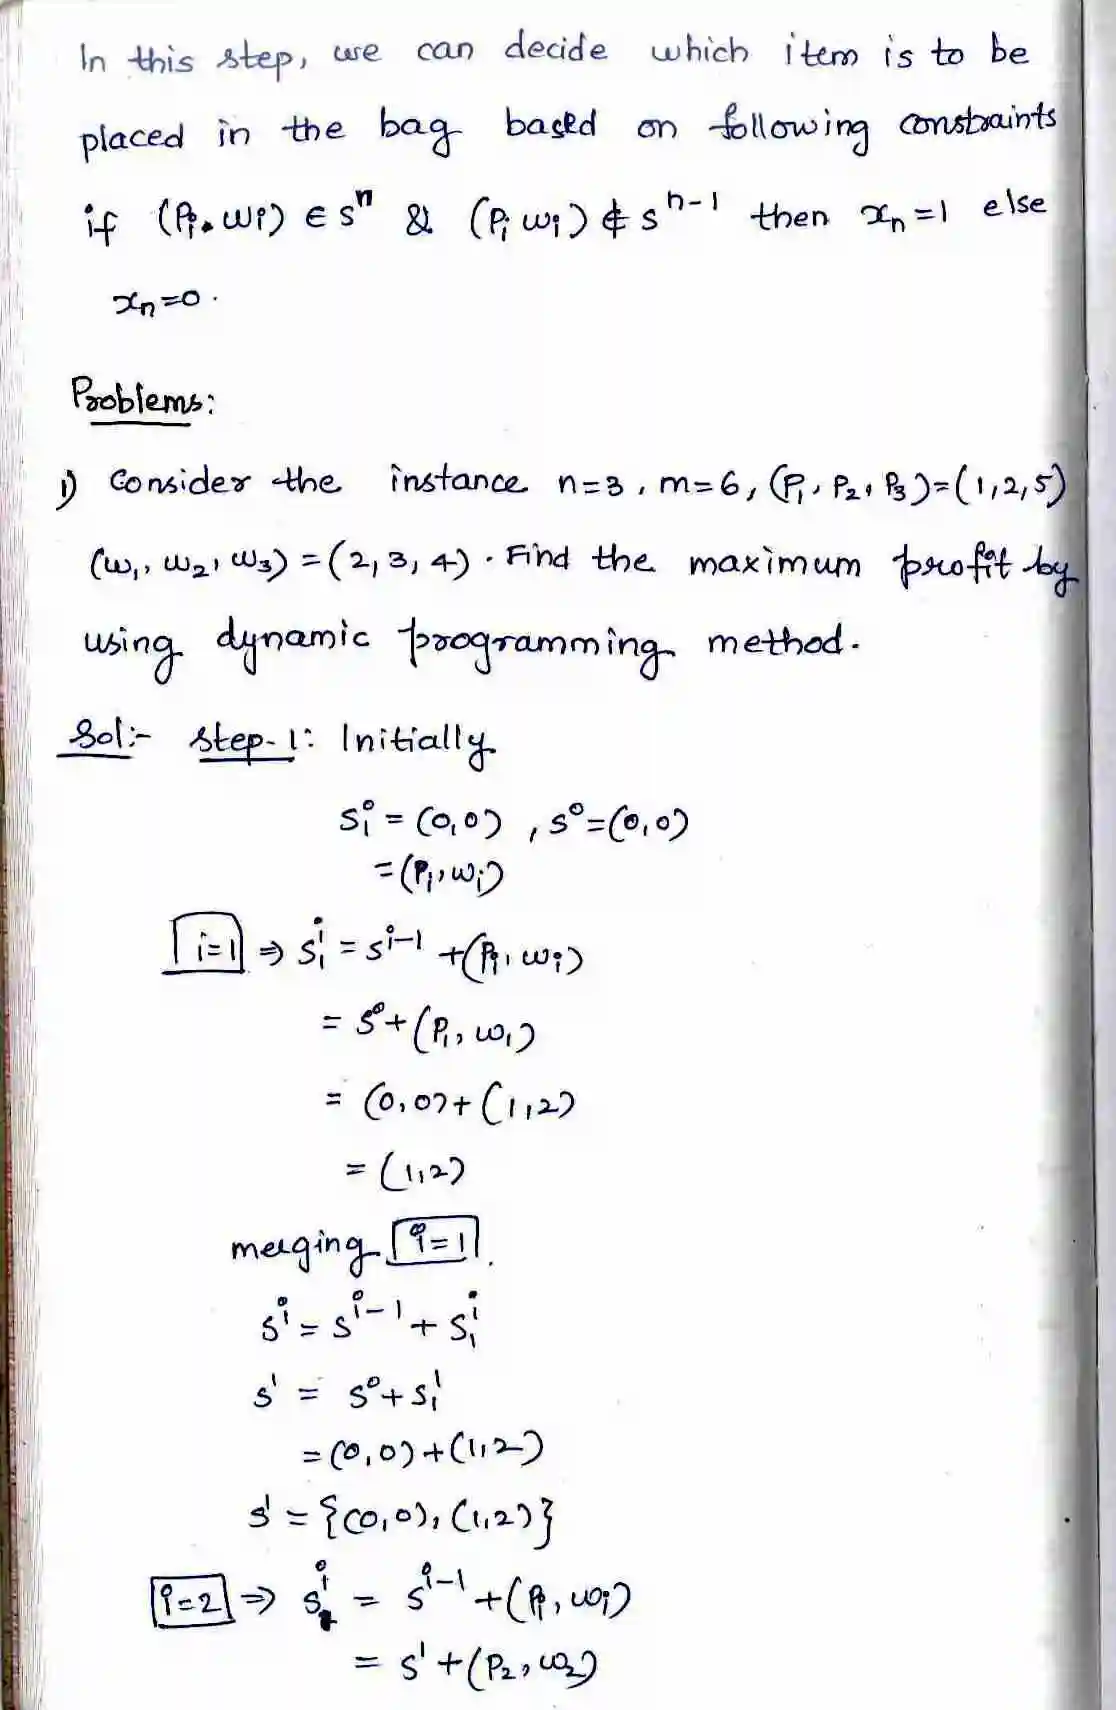 In this step, we can decide which item is to be
placed in the bag based on following constraints
if (Pi, wi) ∈ sⁿ & (Pi wi) ∉ sⁿ⁻¹ then xₙ=1 else
xₙ=0.
Problems:
1) Consider the instance n=3, m=6, (P₁, P₂, P₃)=(1,2,5)
(w₁, w₂, w₃) = (2,3,4). Find the maximum profit by
using dynamic programming method.
Sol:- Step-1: Initially
S₁⁰ = (0,0), s⁰=(0,0)
=(Pi, wi)
i=1 ⇒ S₁ⁱ = sⁱ⁻¹ +(Pi, wi)
= s⁰+(P₁, w₁)
= (0,0)+(1,2)
= (1,2)
merging i=1.
sⁱ = sⁱ⁻¹ + S₁ⁱ
s¹ = s⁰+S₁¹
=(0,0)+(1,2)
s¹ = {(0,0), (1,2)}
i=2 ⇒ S₁ⁱ = sⁱ⁻¹ +(Pi, wi)
= s¹+(P₂, w₂)